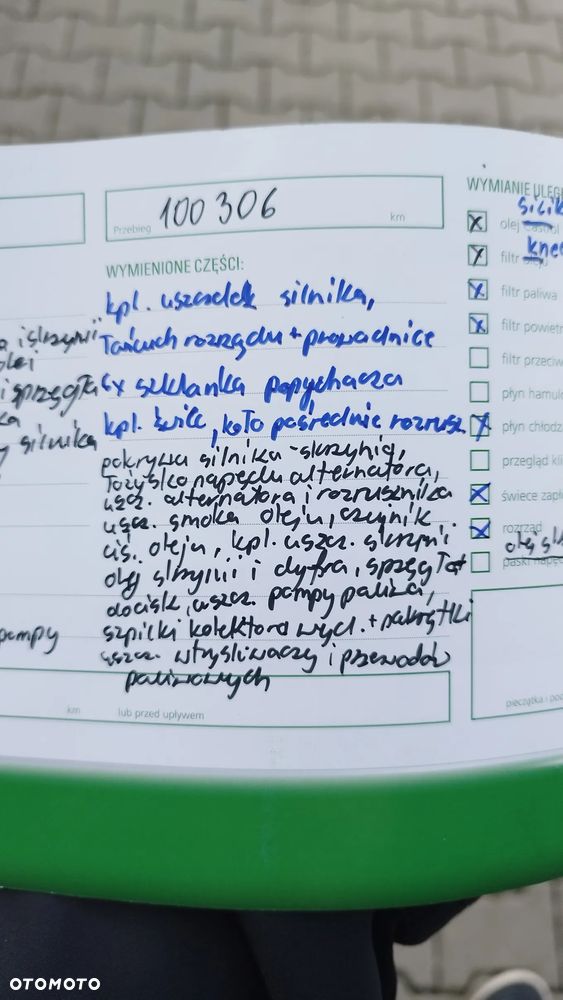 100 306
Przebieg
km
WYMIENIONE CZĘŚCI:
kpl. uszczelek silnika,
Łańcuch rozrządu + prowadnice
6x szklanka popychacza
kpl. świec, koło pośrednie rozrusz.
pokrywa silnika-skrzynią,
łożysko napędu alternatora,
uszcz. alternatora i rozrusznika
uszcz. smoka oleju, czujnik
ciś. oleju, kpl. uszcz. skrzyni
olej skrzynii i dyfra, sprzęgło
docisk, uszcz. pompy paliwa,
szpilki kolektora wyd. + nakrętki
uszcz. wtryskiwaczy i przewodów
paliwowych
km
lub przed upływem
i skrzynii
olei
i sprzęgła
silnika
pompy
WYMIANIE ULEG
silik
olej Castrol
filtr oleju
filtr paliwa
filtr powietr
filtr przeciw
płyn hamul
płyn chłodz
przegląd kli
świece zapł
rozrząd
olej sk
paski napęd
pieczątka i pod
OTOMOTO